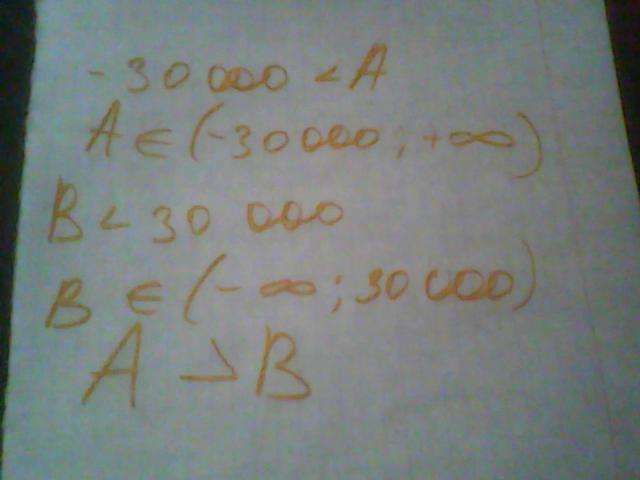 -30 000 < A
A ∈ (-30 000; +∞)
B < 30 000
B ∈ (-∞; 30 000)
A > B